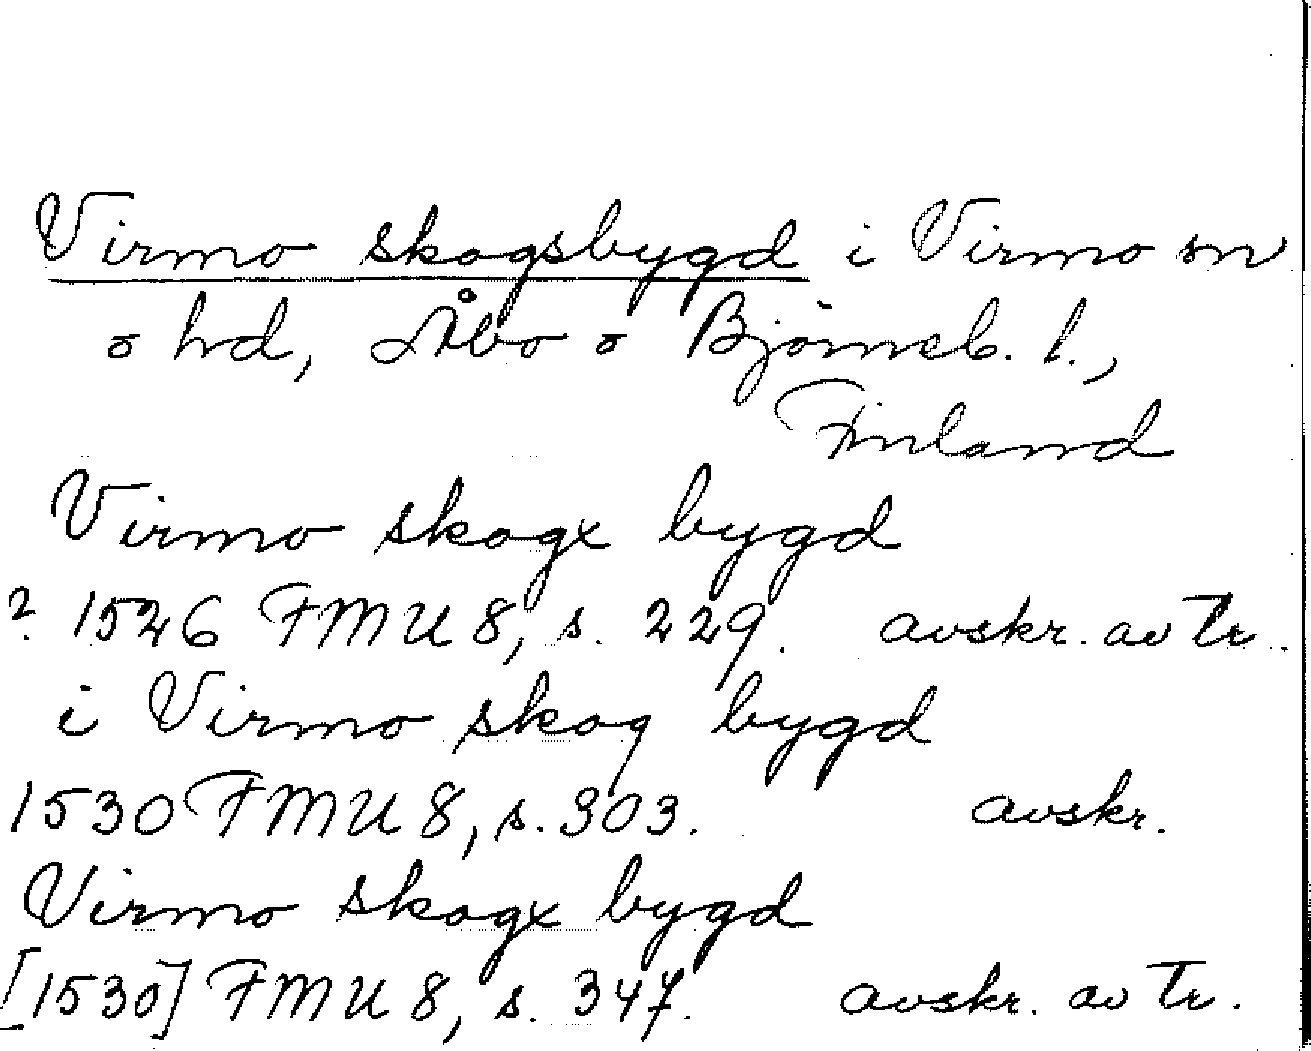 Virmo skogsbygd i Virmo sn
o hd, Åbo o Björneb. l.,
Finland
Virmo skogx bygd
? 1526 FMU 8, s. 229. avskr. av tr.
i Virmo skog bygd
1530 FMU 8, s. 303. avskr.
Virmo skogx bygd
[1530] FMU 8, s. 347. avskr. av tr.